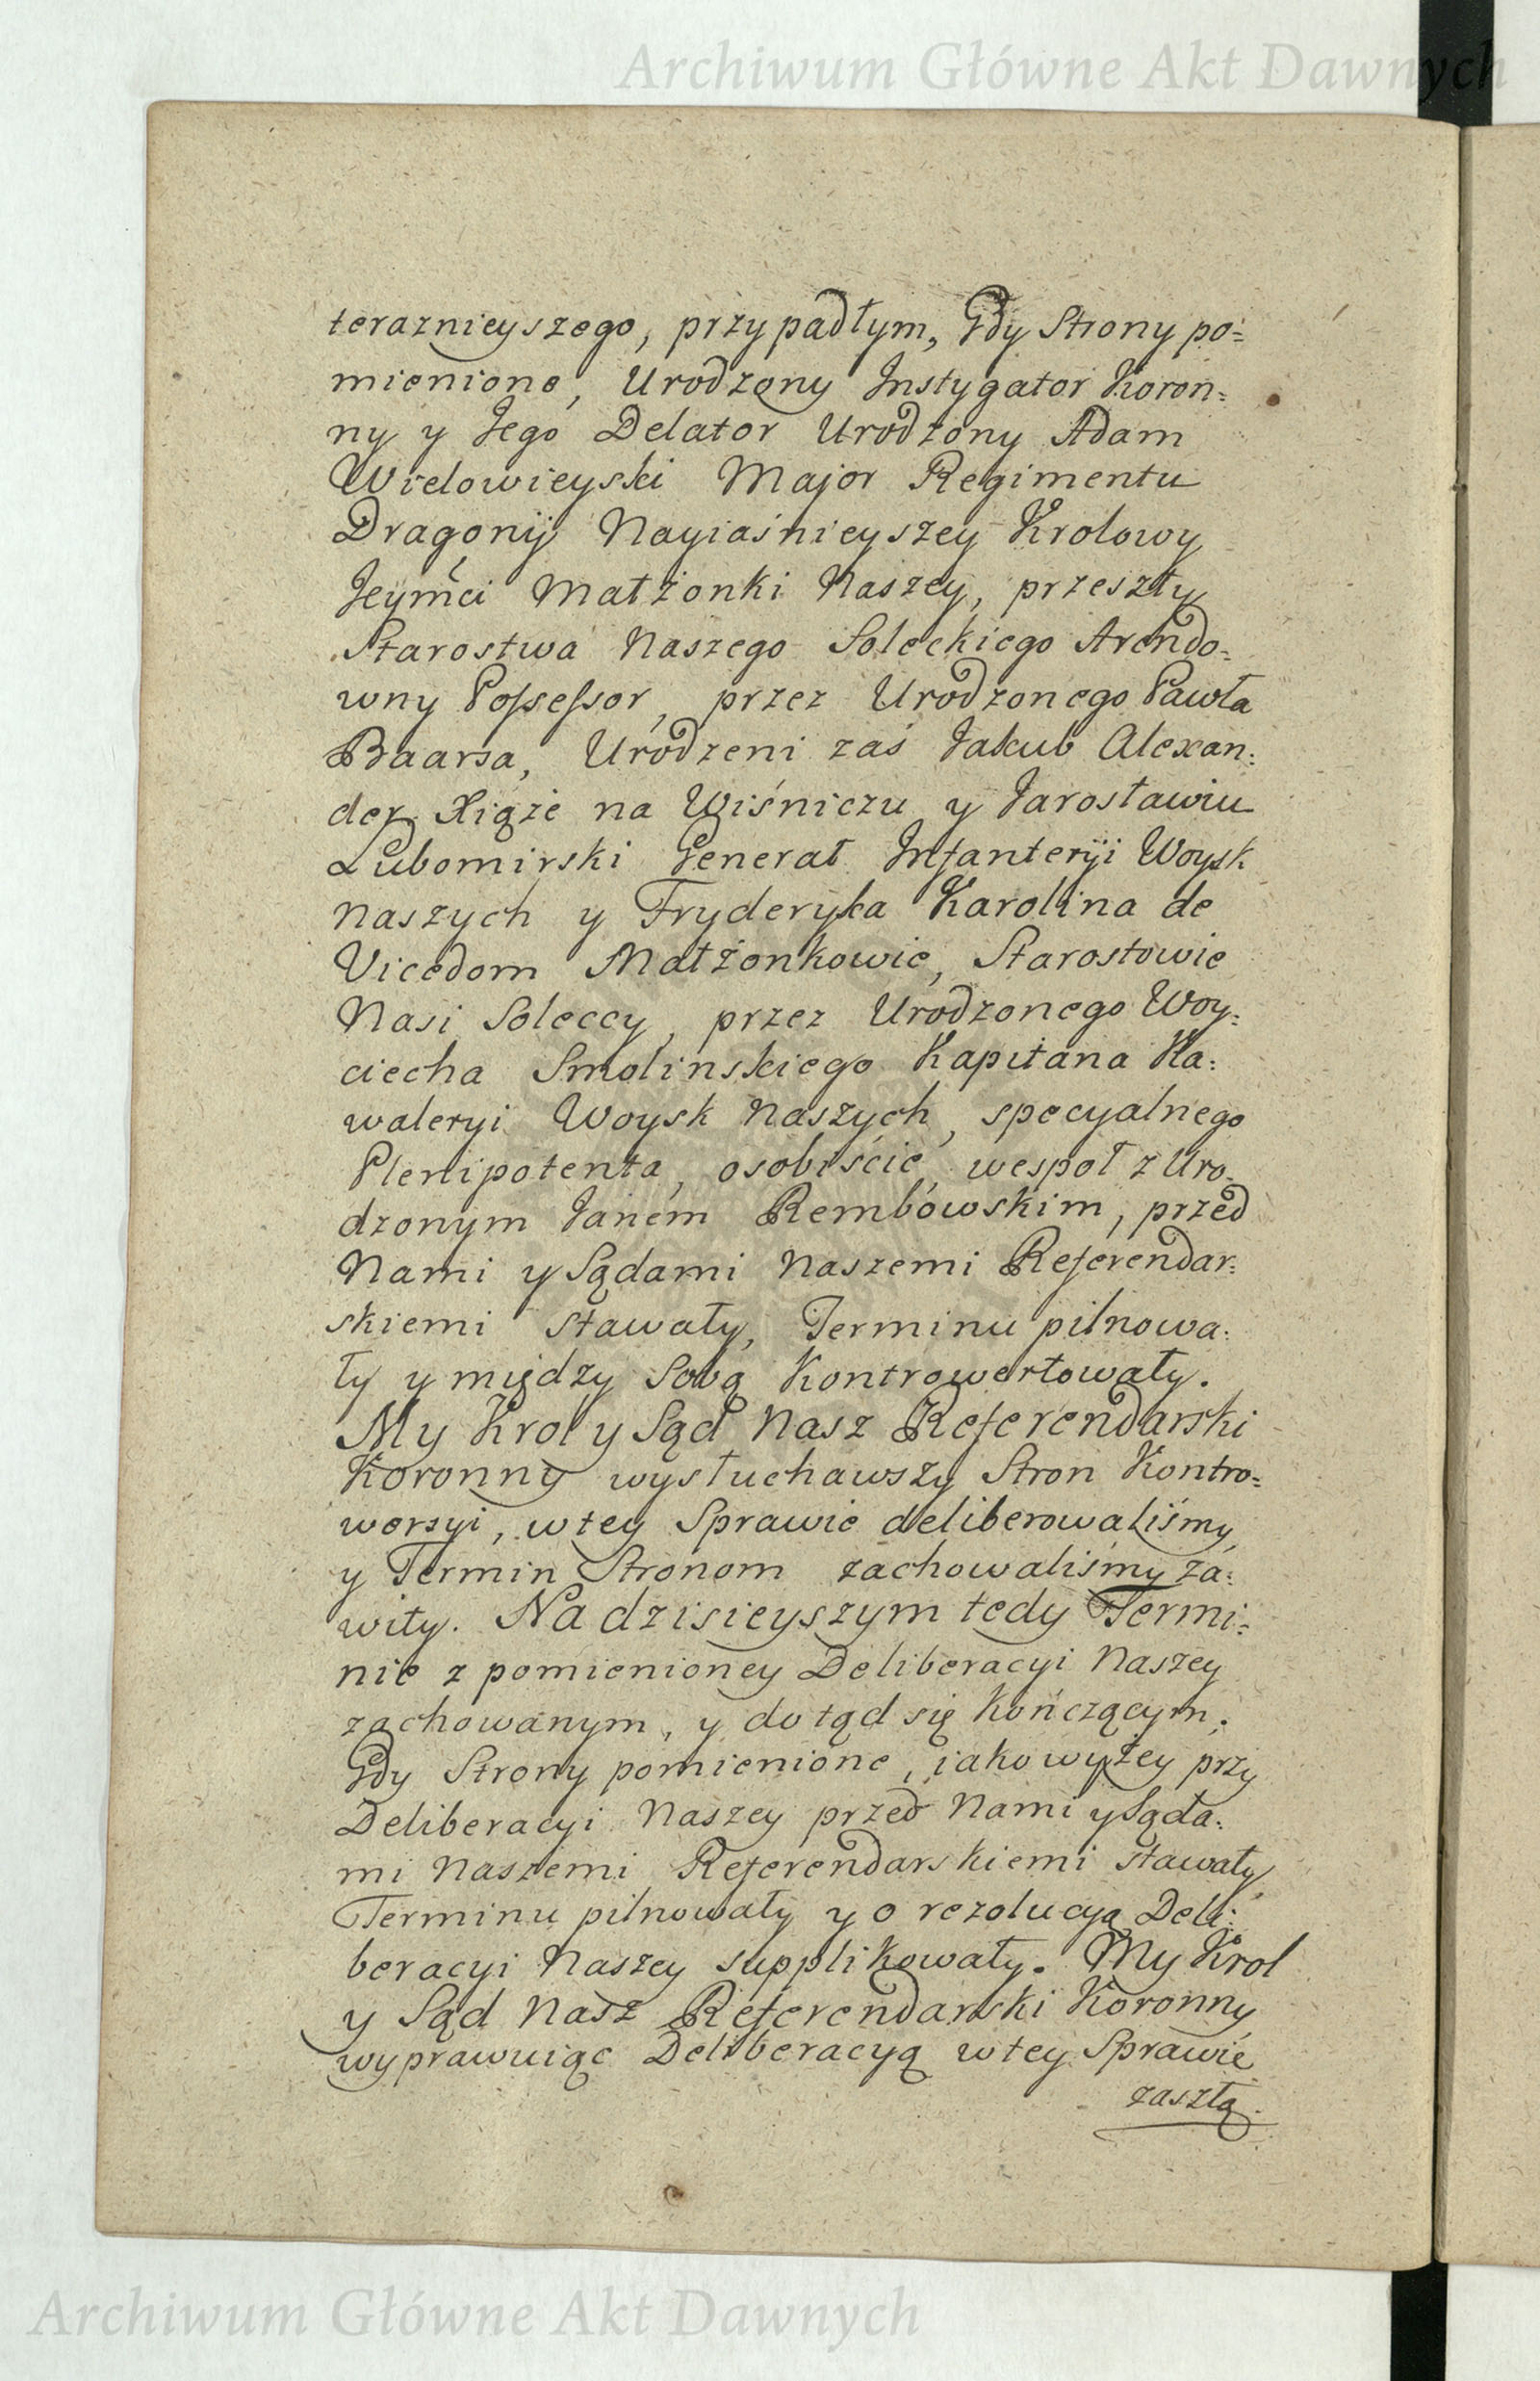 Archiwum Główne Akt Dawnych
teraznieyszego, przypadłym, Gdy Strony po=
mienione, Urodzony Instygator Koron=
ny y Jego Delator Urodzony Adam
Wielowieyski Major Regimentu
Dragonij Nayiaśnieyszey Krolowy
Jeymći Małżonki Naszey, przeszły
Starostwa Naszego Soleckiego Arendo=
wny Possessor, przez Urodzonego Pawła
Baarsa, Urodzeni zaś Jakub Alexan=
der Xiąże na Wiśniczu y Jarosławiu
Lubomirski Generał Infanteryi Woysk
naszych y Fryderyka Karolina de
Vicedom Małżonkowie, Starostowie
Nasi Soleccy, przez Urodzonego Woy=
ciecha Smolinskiego Kapitana Ka=
waleryi Woysk Naszych, specyalnego
Plenipotenta, osobiście, wespoł z Uro=
dzonym Janem Rembowskim, przed
Nami y Sądami Naszemi Referendar=
skiemi stawały, Terminu pilnowa=
ły y między Sobą Kontrowertowały.
My Krol y Sąd Nasz Referendarski
Koronny wysłuchawszy Stron Kontro=
wersyi, w tey Sprawie deliberowaliśmy,
y Termin Stronom zachowaliśmy za=
wity. Na dzisieyszym tedy Termi=
nie z pomienioney Deliberacyi Naszey
zachowanym, y dotąd się kończącym.
Gdy Strony pomienione, iako wyżey przy
Deliberacyi Naszey przed Nami y Sąda=
mi Naszemi Referendarskiemi stawały,
Terminu pilnowały y o rezolucyą Deli=
beracyi Naszey supplikowały. My Krol
y Sąd Nasz Referendarski Koronny
wyprawuiąc Deliberacyą w tey Sprawie
zaszłą.
Archiwum Główne Akt Dawnych